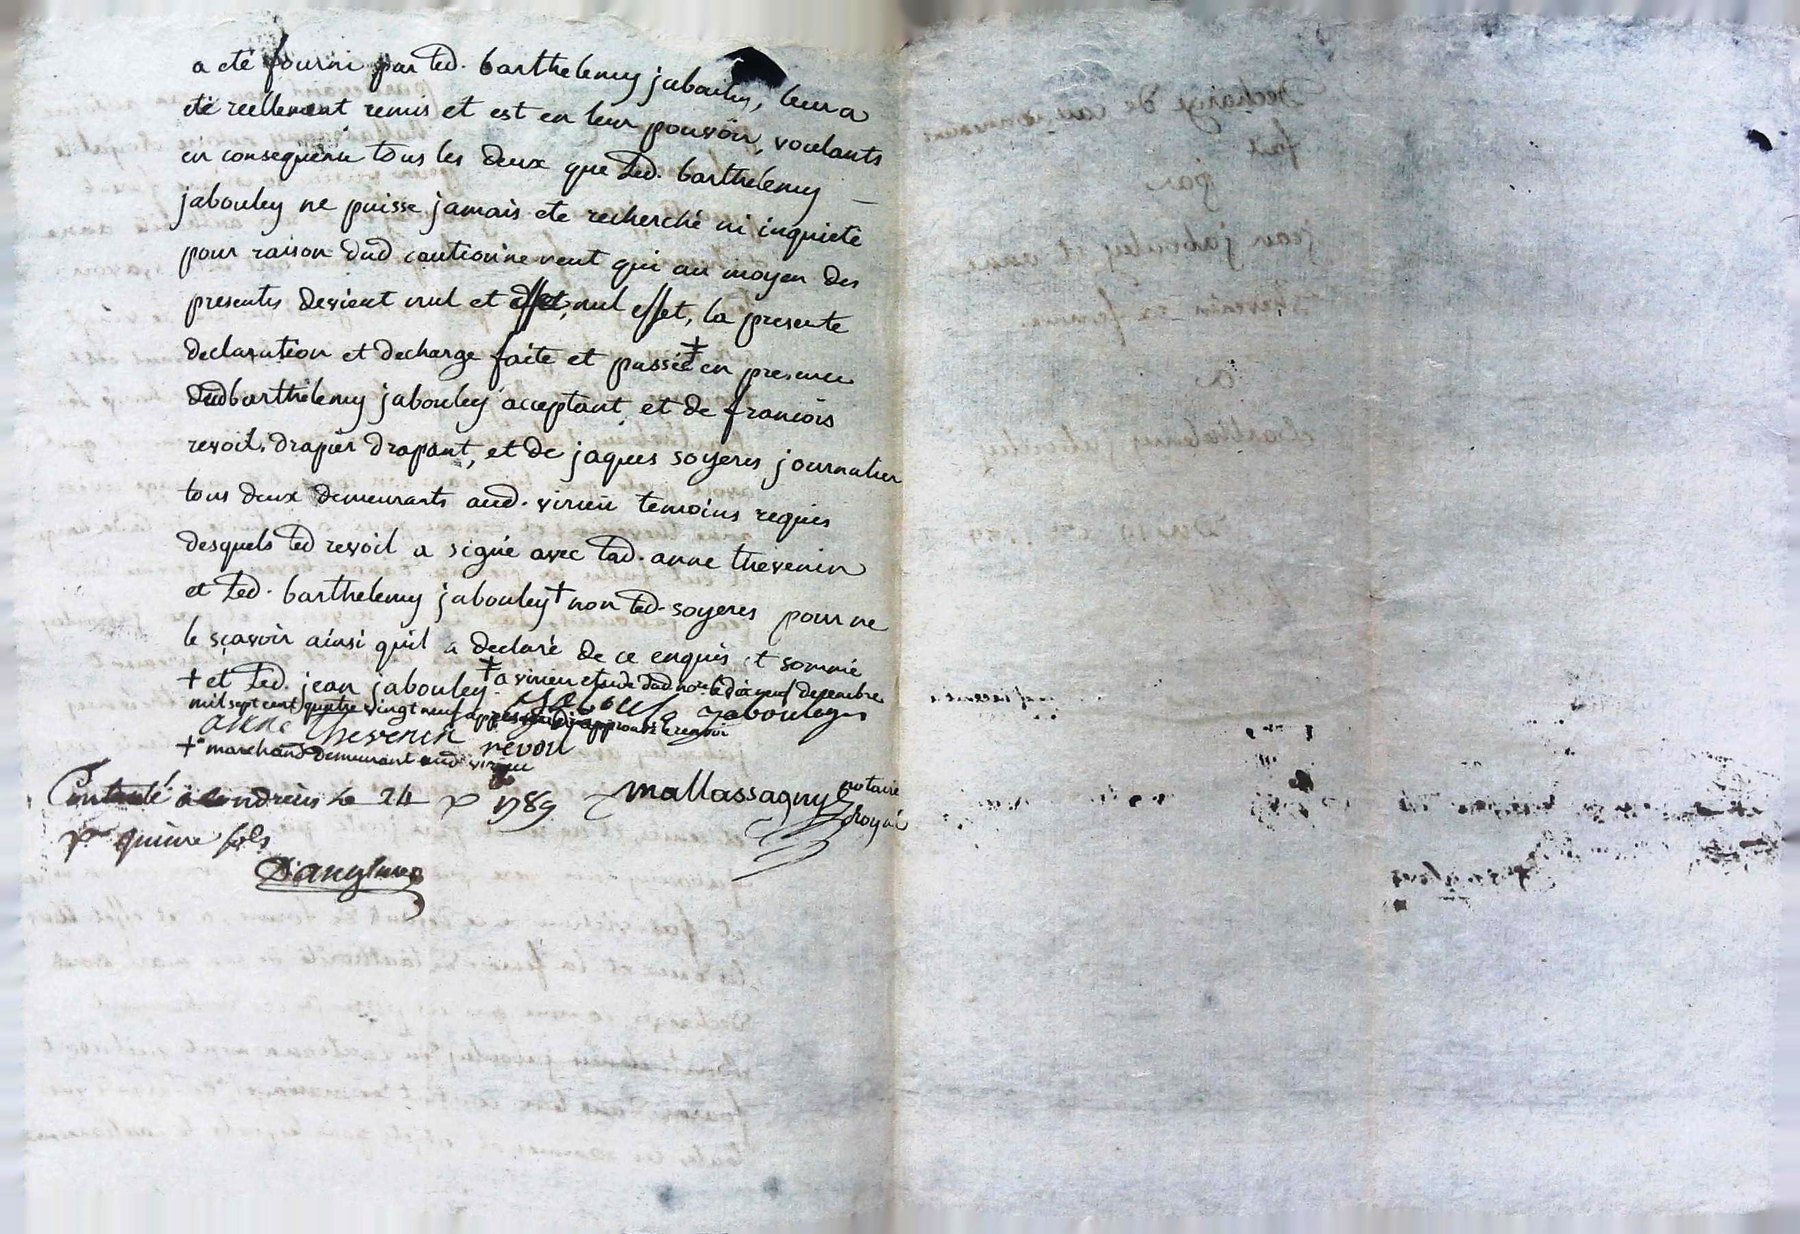 a eté fourni par led. barthelemy jabouley, leur a
eté reellement remis et est en leur pouvoir, voulants
en consequence tous les deux que led. barthelemy
jabouley ne puisse jamais ete recherché ni inquieté
pour raison dud cautionnement qui au moyen des
presentes devient nul et effet, nul effet, la presente
declaration et decharge faite et passée + en presence
dud barthelemy jabouley acceptant, et de francois
revoil, drapier drapant, et de jaques soyeres journalier
tous deux demeurants aud. virieu temoins requis
desquels led revoil a signé avec lad. anne thevenin
et led. barthelemy jabouley + non led. soyeres pour ne
le sçavoir ainsi quil a declaré de ce enquis et sommé
+ et led. jean jabouley. + a virieu etude dud no.re le dix neuf decembre
mil sept cent quatre vingt neuf
jabouley
anne thevenin revoil
+ marchand demeurant aud virieu
Controlé le 24 1789 mallassagny notaire
royal
quinze sols
Decharge de cautionnement
fait
par
jean jabouley et anne
thevenin sa femme
a
barthelemy jabouley